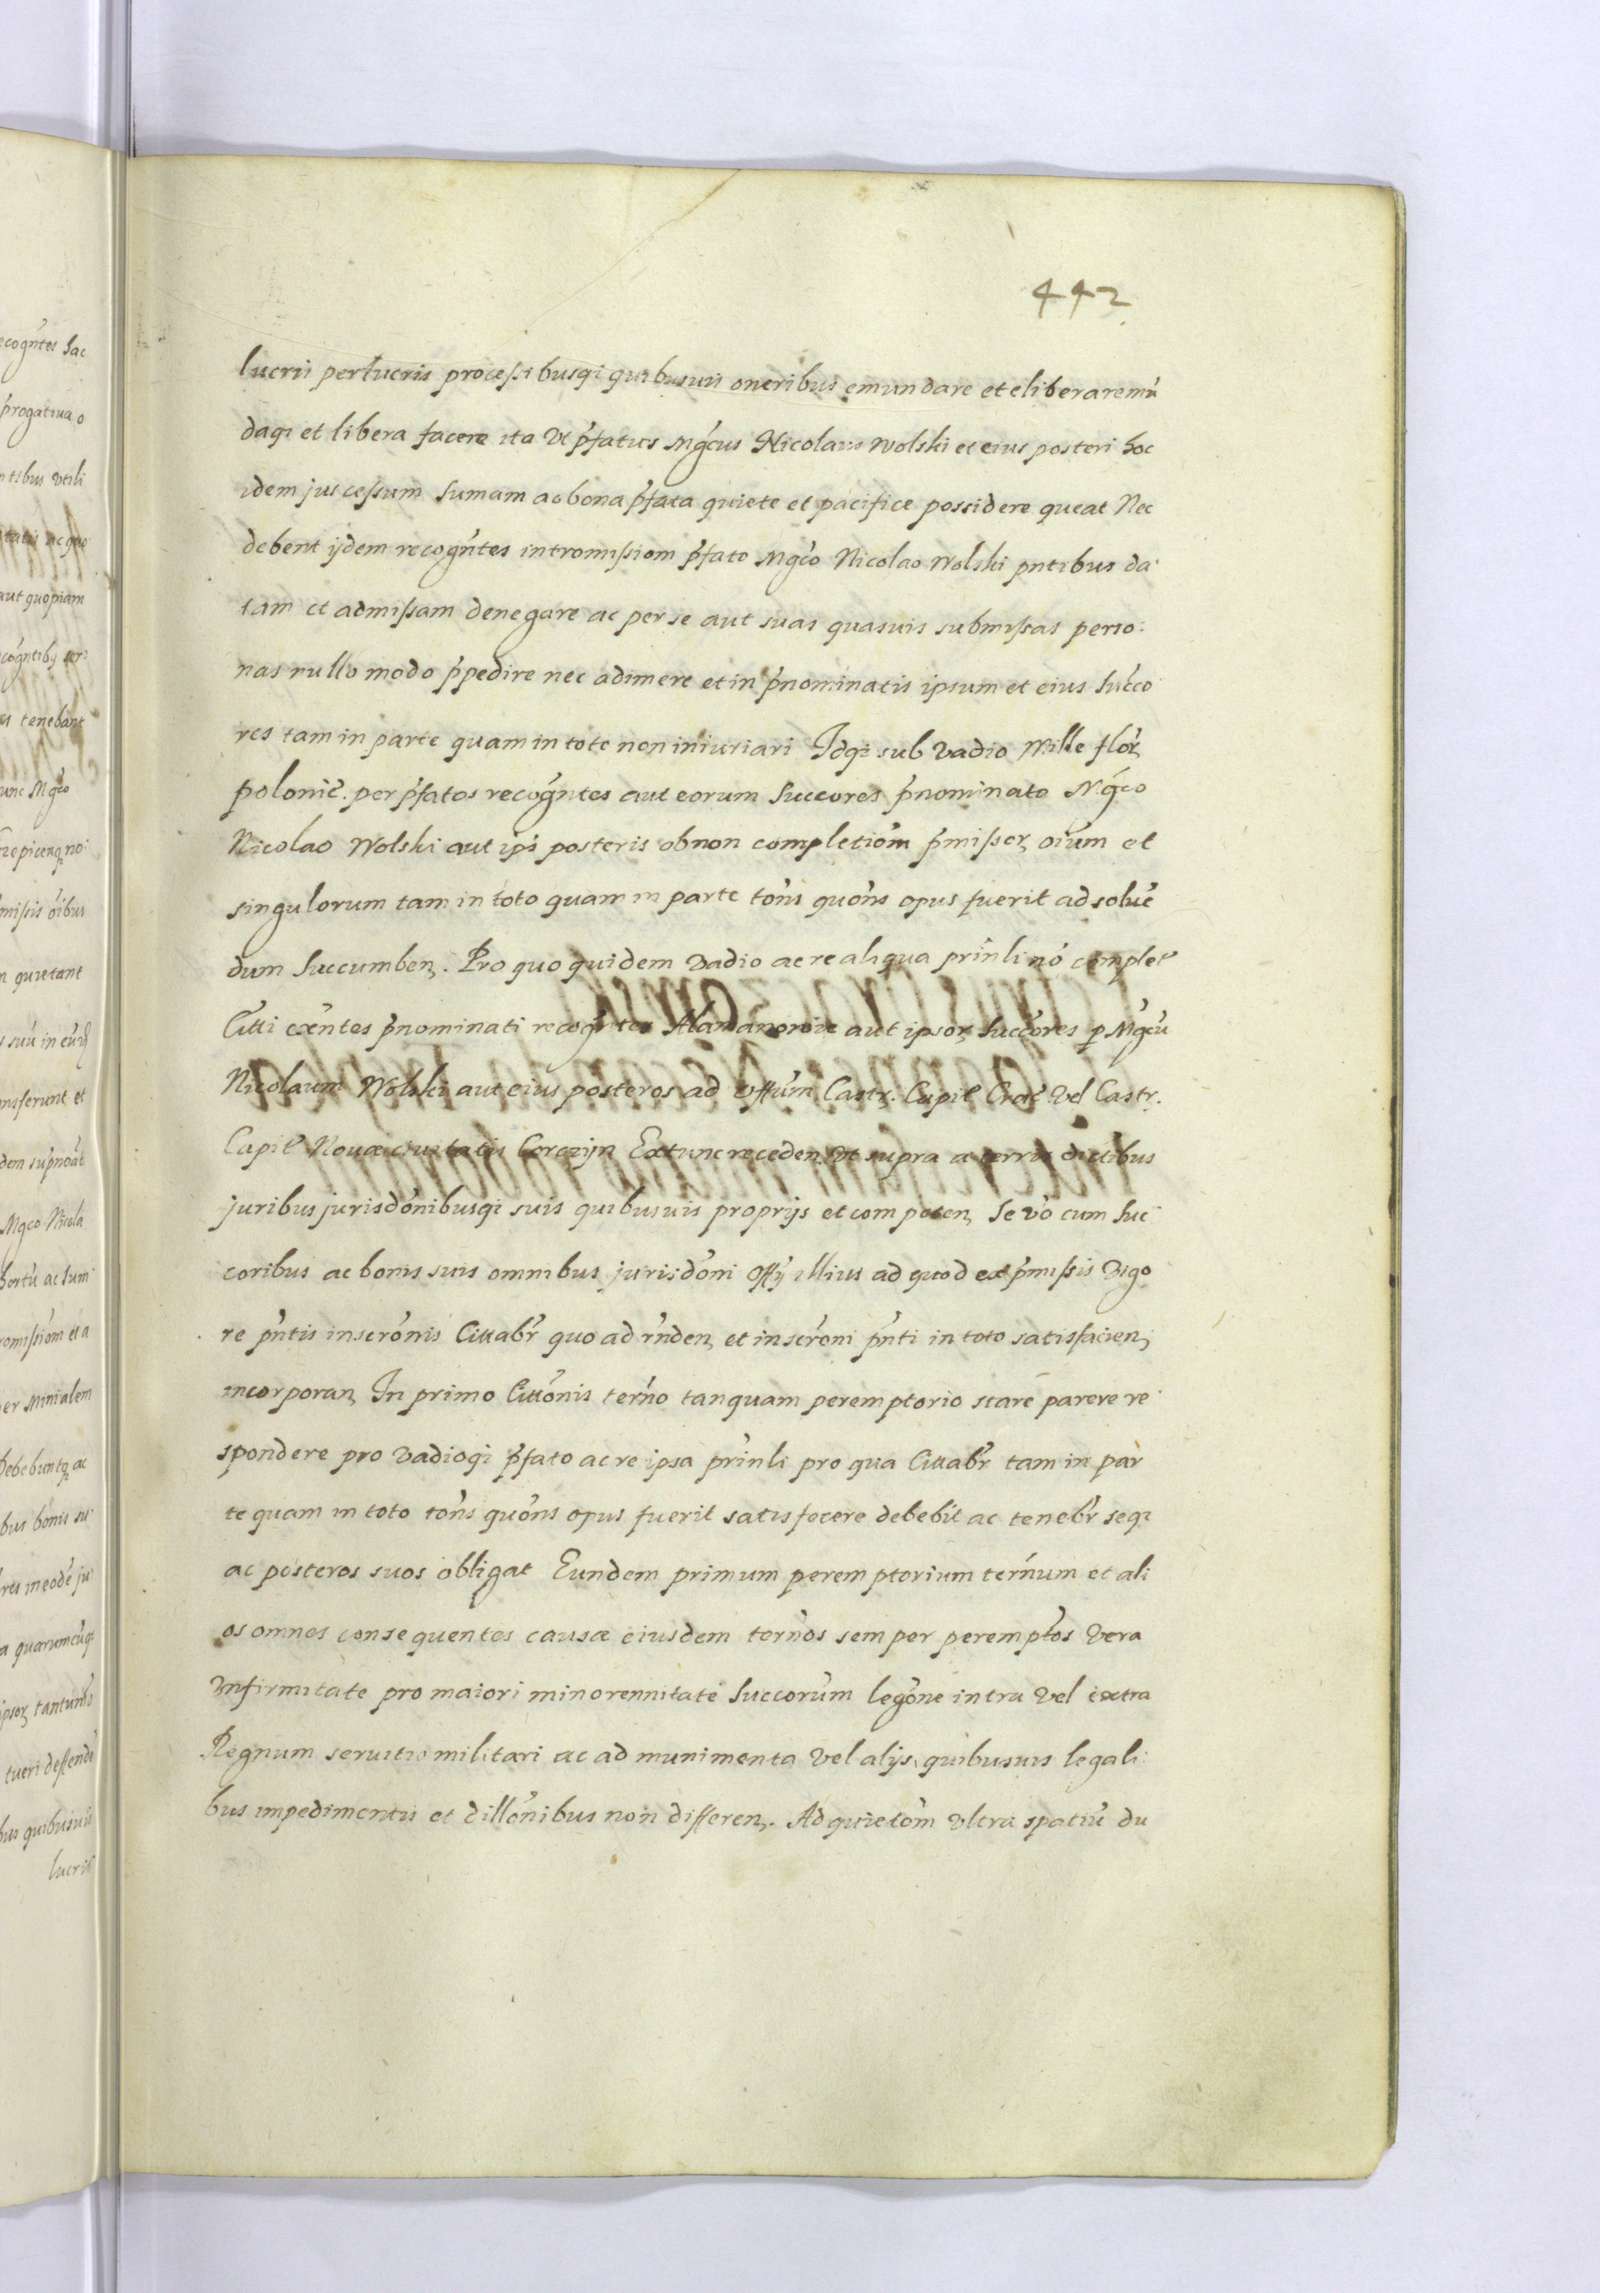 442
lucrii perlucris processibusqi quibusuis oneribus emundare et eliberare mũ
daqi et libera facere ita Vt p̃fatus Mg̃cus Nicolaus Wolski et eius posteri hoc
idem jus cessum Sumam ac bona p̃fata quiete et pacifice possidere queat Nec
debent ijdem recogñtes intromissiom p̃fato Mg̃co Nicolao Wolski pñtibus da
tam et admissam denegare ac per se aut suas quasuis submissas perso:
nas nullo modo p̃pedire nec adimere et in p̃nominatis ipsum et eius Succo
res tam in parte quam in toto non iniuriari Idqi sub Vadio Mille flor̃
polonic̃. per p̃fatos recogñtes aut eorum Succores p̃nominato Mg̃co
Nicolao Wolski aut ip̃s posteris ob non completiõm p̃missor, oium et
singulorum tam in toto quam in parte tõns quõns opus fuerit ad solue̅
dum Succumben. Pro quo quidem Vadio ac re aliqua prĩnli nõ complet̃
Citti exñtes p̃nominati recogñtes aut ipsor, Succores p Mg̃cũ
Nicolaum Wolski aut eius posteros ad offũm Castr. Capit̃ Crac̃ Vel Castr.
Capit̃ Nouæ ciuitatis Corczijn Extunc receden, Vt supra a terris dictibus
juribus jurisdõnibusqi suis quibusuis proprijs et competen, Se vo cum Suc
coribus ac bonis suis omnibus jurisdõni offij illius ad quod ex p̃missis Vigo
re pñtis inscrõnis Cittabr̃ quo ad rñden, et inscrõni pñti in toto satisfacien,
incorporan, In primo Cittõnis ter̃no tanquam peremptorio stare parere re
spondere pro Vadioqi p̃fato ac re ipsa prĩnli pro qua Cittabr̃ tam in par
te quam in toto tõns quõns opus fuerit satisfacere debebit ac tenebr̃ seqi
ac posteros suos obligat Eundem primum peremptorium ter̃num et ali
os omnes consequentes causæ eiusdem ter̃nos semper peremptõs Vera
Infirmitate pro maiori minorennitate Succorum legõne intra Vel extra
Regnum seruitio militari ac ad munimenta Vel alijs quibusuis legali
bus impedimentis et dillõnibus non differen. Ad quietõm Vltra spatiũ du